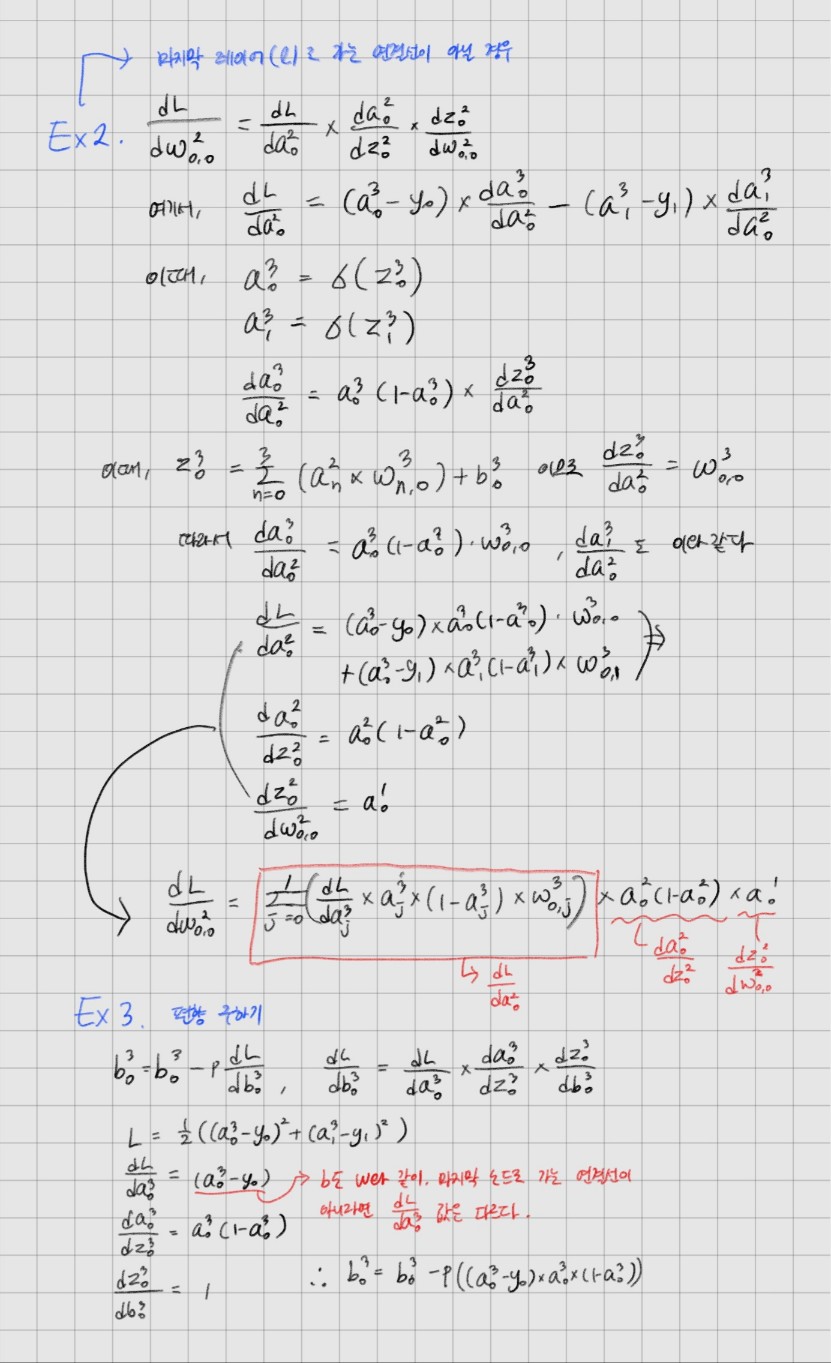 → 마지막 레이어(l)로 가는 연결선이 아닐 경우
Ex2. dL/dw²₀,₀ = dL/da²₀ × da²₀/dz²₀ × dz²₀/dw²₀,₀
여기서, dL/da²₀ = (a³₀ - y₀) × da³₀/da²₀ - (a³₁ - y₁) × da³₁/da²₀
이때, a³₀ = 6(z³₀)
a³₁ = 6(z³₁)
da³₀/da²₀ = a³₀ (1-a³₀) × dz³₀/da²₀
이때, z³₀ = ³Σₙ₌₀ (a²ₙ × w³ₙ,₀) + b³₀ 이므로 dz³₀/da²₀ = w³₀,₀
따라서 da³₀/da²₀ = a³₀ (1-a³₀) · w³₀,₀ , da³₁/da²₀ 도 이와 같다
dL/da²₀ = (a³₀-y₀) × a³₀ (1-a³₀) · w³₀,₀
+ (a³₁-y₁) × a³₁ (1-a³₁) × w³₀,₁
da²₀/dz²₀ = a²₀ (1-a²₀)
dz²₀/dw²₀,₀ = a¹₀
dL/dw²₀,₀ = ¹Σⱼ₌₀ (dL/da³ⱼ × a³ⱼ × (1-a³ⱼ) × w³₀,ⱼ) × a²₀ (1-a²₀) × a¹₀
↳ dL/da²₀
da²₀/dz²₀
dz²₀/dw²₀,₀
Ex3. 편향 구하기
b³₀ = b³₀ - ρ dL/db³₀ , dL/db³₀ = dL/da³₀ × da³₀/dz³₀ × dz³₀/db³₀
L = ½((a³₀-y₀)² + (a³₁-y₁)²)
dL/da³₀ = (a³₀-y₀) → b도 w와 같이. 마지막 노드로 가는 연결선이
아니라면 dL/da³₀ 값은 다르다.
da³₀/dz³₀ = a³₀ (1-a³₀)
dz³₀/db³₀ = 1
∴ b³₀ = b³₀ - ρ((a³₀-y₀) × a³₀ × (1-a³₀))